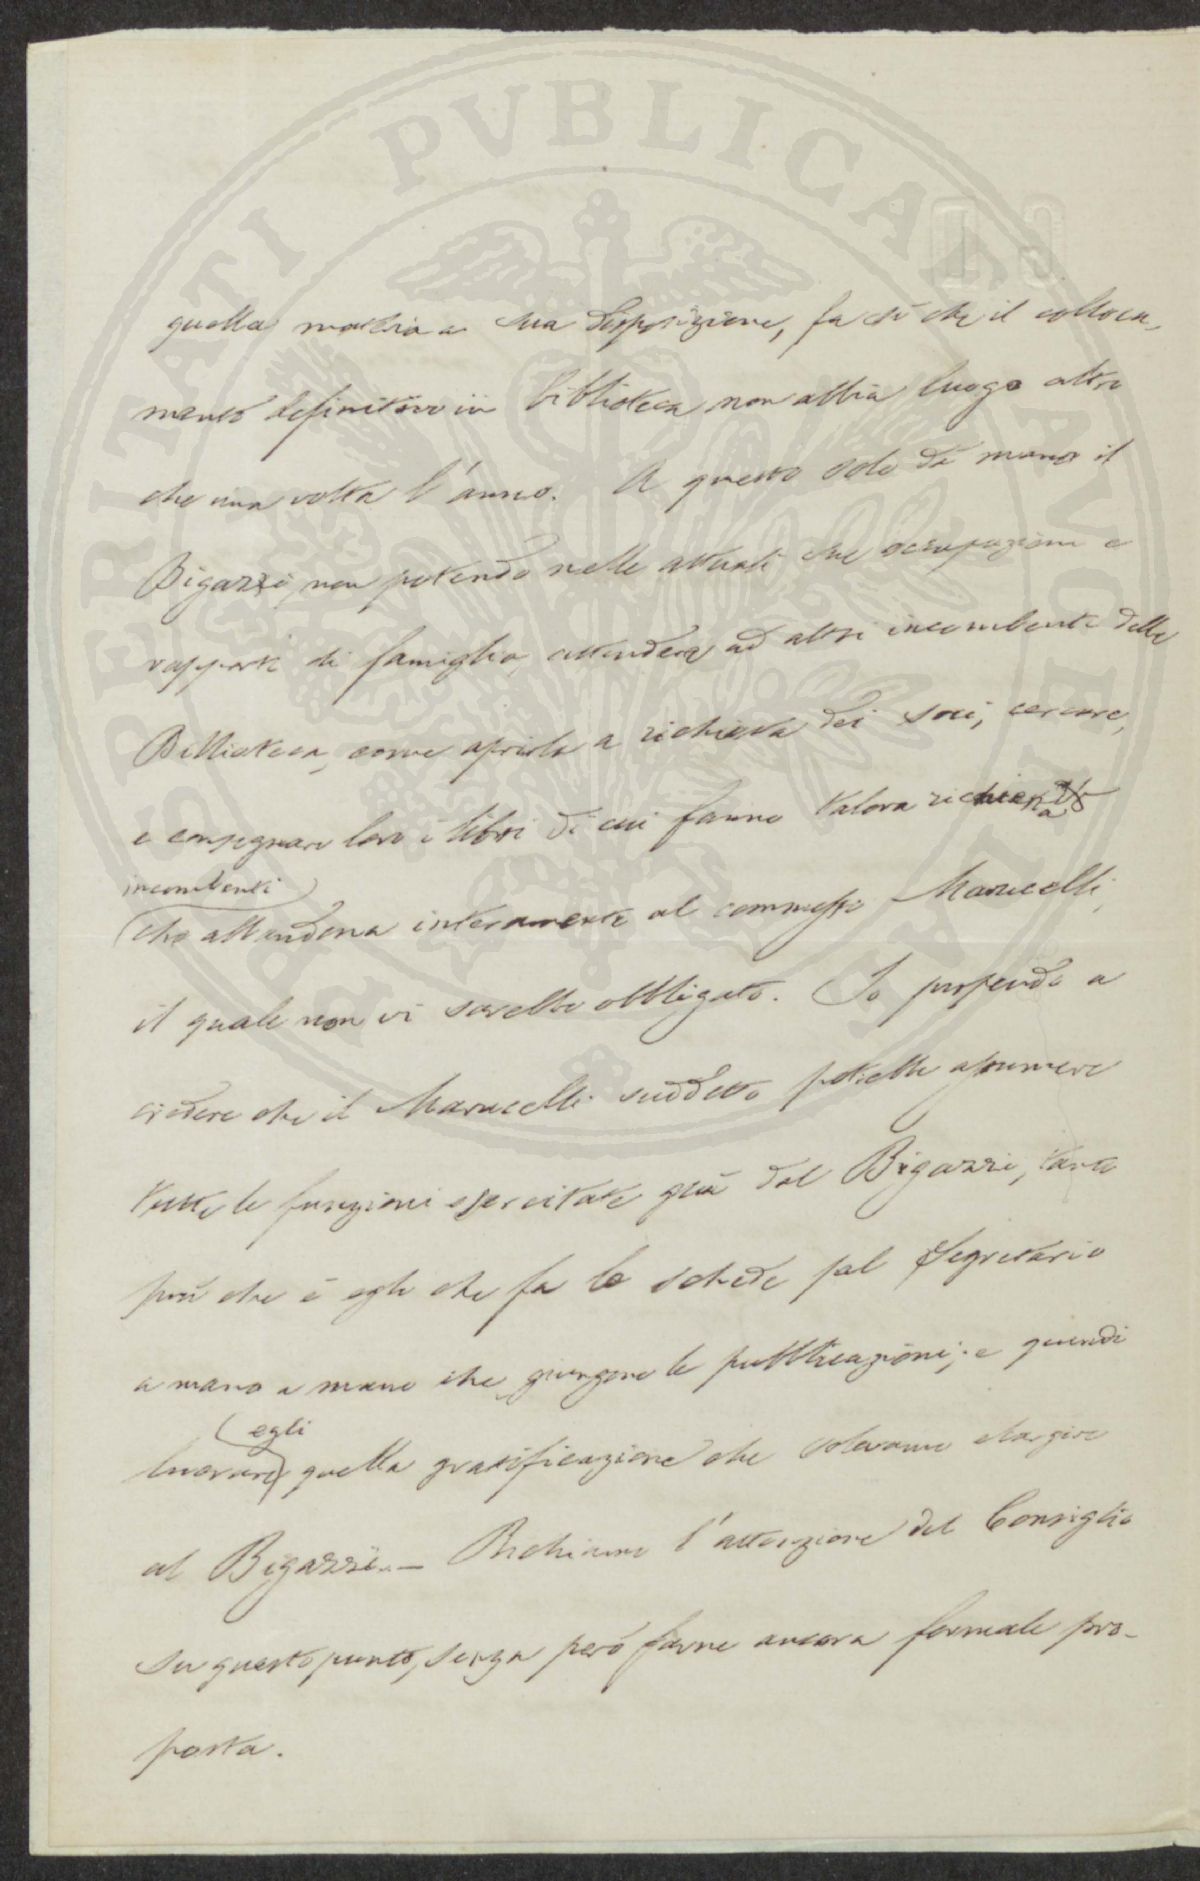 PROSPERITATI PUBLICAE AUGENDAE
quella a sua disposizione, fa sì che il colloca-
mento definitivo in biblioteca non abbia luogo altro
che una volta l'anno. A questo solo dà mano il
Bigazzi, non potendo nelle attuali sue occupazioni e
rapporti di famiglia, attendere ad altri incombenti della
Biblioteca, come aprirla a richiesta dei soci, cercare,
e consegnare loro i libri di cui fanno talora richiesta
incombenti
che abbandona interamente al commesso Marucelli,
il quale non vi sarebbe obbligato. Io propendo a
credere che il Marucelli suddetto potrebbe assumere
tutte le funzioni esercitate già dal Bigazzi, tanto
più che è egli che fa le schede pel Segretario
a mano a mano che giungono le pubblicazioni; e quindi
egli
lucrare quella gratificazione che solevamo elargire
al Bigazzi. — Richiamo l'attenzione del Consiglio
su questo punto, senza però farne ancora formale pro-
posta.